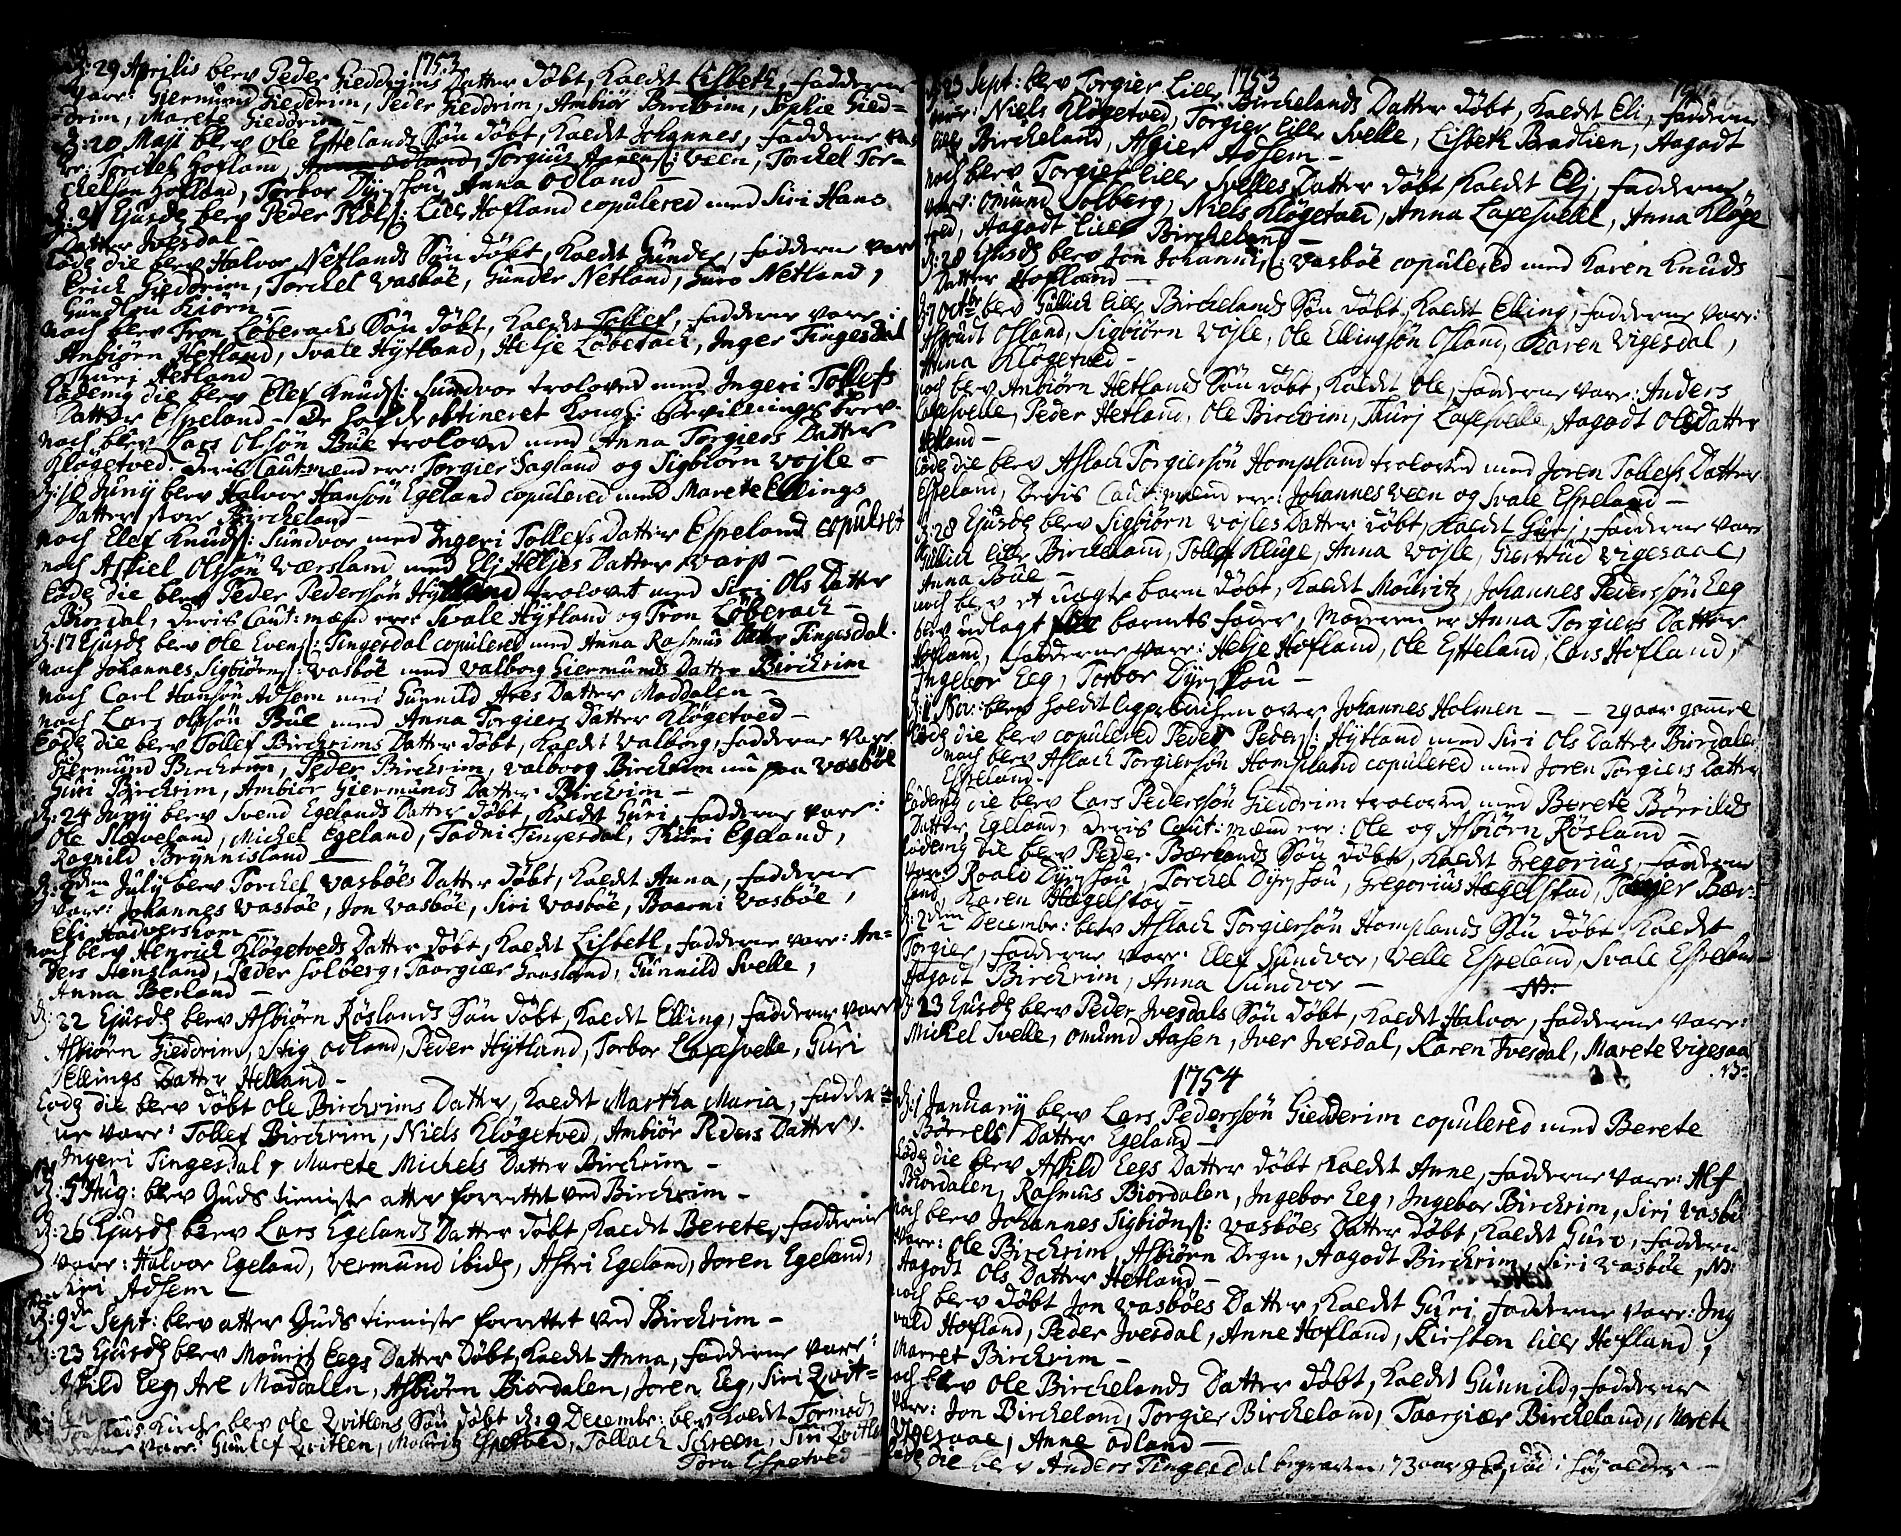 1753
D: 29 Aprilis blev Peder Gieddrims Datter døbt, kaldt Lisbeth, fadderne
vare: Giermund Gieddrim, Peder Gieddrim, Ambiør Birchrim, Sophie Gied=
drim, Marete Gieddrim —
D: 20 Maji blev Ole Esselands Søn døbt, kaldt Johannes, fadderne va=
re: Torchel Hofland, Torgius Aanens: Veen, Torchel Tor=
chelsen Hofland, Torbor Dyrskou, Anna Odland —
D: 31 Ejusd: blev Peder Rols: Lille Hofland copulered med Siri Hans
Datter Ivesdal
Eod: die blev Halvor Netlands Søn døbt, kaldt Gunder, fadderne vare
Erich Gieddrim, Torchel Vasbøe, Gunder Netland, Guro Netland,
Gundlou Kiørn
noch blev Tron Løberachs Søn døbt, kaldt Tollef, fadderne vare:
Anbiørn Hetland, Svale Hytland, Helje Løberach, Inger Tingesdal
Thuri Hetland —
Eodem die blev Elef Knuds: Sundvor troloved med Ingeri Tollefs
Datter Espeland — De hafde obtineret Kongl: Bevillings brev.
noch blev Lars Olsøn Bue troloved med Anna Torgiers Datter
Kløgetved. Deris Caut: mænd ere: Torgier Sagland og Sigbiørn Vosle —
D: 10 Junij blev Halvor Hansøn Egeland copulered med Marete Ellings
Datter store Bircheland —
noch Elef Knuds: Sundvor med Ingeri Tollefs Datter Espeland copuleret
noch Askiel Olsøn Værsland med Eli Heljes Datter Svarp —
Eod: die blev Peder Pedersøn Hytland trolovet med Siri Ols Datter
Biordal, Deris Caut: mænd ere Svale Hytland og Tron Løberach —
D: 17 Ejusd: blev Ole Evens: Tingesdal copulered med Anna Rasmus Datter Tingesdal.
noch Johannes Sigbiørns: Vasbøe med Valborg Giermunds Datter Birchrim
noch Carl Hansøn Adsem med Gunnild Ares Datter Maddalen —
noch Lars Olsøn Bue med Anna Torgiers Datter Kløgetved —
Eod: die blev Tollef Birchrims Datter døbt, kaldt Valborg, fadderne vare
Giermund Birchrim, Peder Birchrim, Valborg Birchrim nu paa Vasbøe
Guri Birchrim, Ambiør Giermunds Datter Birchrim —
D: 24 Junij blev Svend Egelands Datter døbt, kaldt Guri, fadderne vare:
Ole Sleveland, Michel Egeland, Tadni Tingesdal, Thuri Egeland,
Ragnild Brynnisland —
D: 8den Julij blev Torchel Vasbøes Datter døbt, kaldt Anna, fadderne
vare: Johannes Vasbøe, Jon Vasbøe, Siri Vasbøe, Baarni Vasbøe,
Eli Hadverskom —
noch blev Henrich Kløgetveds Datter døbt, kaldt Lisbeth, fadderne vare: An=
ders Stensland, Peder Solberg, Taargier Gaasland, Gunnild Svelle,
Anna Berland —
D: 22 Ejusd: blev Asbiørn Røslands Søn døbt, kaldt Elling, fadderne vare
Asbiørn Gieddrim, Stig Odland, Peder Hytland, Torbor Laxesvelle, Guri
Ellings Datter Helland —
Eod: die blev døbt Ole Birchrims Datter, kaldt Martha Maria, fadder=
ne vare: Tollef Birchrim, Niels Kløgetved, Ambiør Peders Datter,
Ingeri Tingesdal, Marete Michels Datter Birchrim —
D: 5 Aug: blev Guds tieniste atter forrettet ved Birchrim —
D: 26 Ejusd: blev Lars Egelands Datter døbt, kaldt Berete, fadderne
vare: Halvor Egeland, Vermund ibid:, Astri Egeland, Joren Egeland,
Siri Adsem —
D: 9de Sept: blev atter Guds tieniste forrettet ved Birchrim —
D: 23 Ejusd: blev Mourits Eegs Datter døbt, kaldt Anna, fadderne vare:
Askild Eeg, Are Maddalen, Asbiørn Biordalen, Joren Eeg, Siri Qvit=
len
Kirche blev Ole Qvitlens Søn døbt d: 9 Decembr: blev kaldt Tormod,
vare: Gunlef Qvitlen, Mourits Espetved, Tollach Schreen, Siri Qvitlen
Tora Espetved
1753
D: 23 Sept: blev Torgier Lille Birchelands Datter døbt, kaldt Eli, fadderne
vare: Niels Kløgetved, Torgier lille Svelle, Lisbeth Bradlien, Aagadt
lille Bircheland, Asgier Adsem —
noch blev Torgier lille Svelles Datter døbt, kaldt Eli, fadderne
vare: Omund Solberg, Niels Kløgetved, Anna Laxesvelle, Anna Kløge
tved, Aagadt lille Bircheland —
D: 28 Ejusd: blev Jon Johannis: Vasbøe copulered med Karen Knuds
Datter Hofland —
D: 7 Octbr blev Gullich lille Birchelands Søn døbt, kaldt Elling, fadderne vare:
Asgudt Osland, Sigbiørn Vosle, Ole Ellingsøn Osland, Karen Vigesdal,
Anna Kløgetved —
noch blev Anbiørn Hetlands Søn døbt, kaldt Ole, fadderne vare: Anders
Laxesvelle, Peder Hetland, Ole Birchrim, Thurj Laxesvelle, Aagadt Olsdatter
Hetland —
Eod: die blev Aslach Torgiersøn Hompland troloved med Joren Tollefs Datter
Espeland, Deris Caut: mænd ere: Johannes Veen og Svale Espeland —
D: 28 Ejusd: blev Sigbiørn Vosles Datter døbt, kaldt Guri, fadderne vare
Gullich lille Bircheland, Tollef Kluge, Anna Vosle, Giertrud Vigesaae,
Anna Bue —
noch blev et uægte barn døbt, kaldt Mouritz, Johannes Pedersøn Eeg
blev udlagt barnets fader, Moderen er Anna Torgiers Datter
Hofland, fadderne vare: Helje Hofland, Ole Esseland, Lars Hofland,
Ingebor Eeg, Torbor Dyrskou —
D: 11 Nov: blev holdt liggprædichen over Johannes Holmen — — 29 aar gamel
Eod: die blev copulered Peder Peders: Hytland med Siri Ols Datter Biordalen
noch blev Aslach Torgiersøn Hompland copulered med Joren Torgiers Datter
Espeland —
Eodem die blev Lars Pedersøn Gieddrim troloved med Berete Børrilds
Datter Egeland, Deris Caut: mænd ere: Ole og Asbiørn Røsland —
Eodem die blev Peder Bærlands Søn døbt, kaldt Gregorius, fadderne
vare Roald Dyrskou, Torchel Dyrskou, Gregorius Hægelstad, Bær=
land, Karen Hægelstad —
D: 2den Decembr: blev Aslach Torgiersøn Homplands Søn døbt, kaldt
Torgier, fadderne vare: Elef Sundvor, Velle Espeland, Svale Espeland
Aagadt Birchrim, Anna Sundvor —
D: 23 Ejusd: blev Peder Ivesdals Søn døbt, kaldt Halvor, fadderne vare:
Michel Svelle, Omund Aasen, Iver Ivesdal, Karen Ivesdal, Marete Vigesaa
1754
D: 1 Januarij blev Lars Pedersøn Giedderim copulered med Berete
Børrels Datter Egeland —
Eod: die blev Askild Eegs Datter døbt, kaldt Anne, fadderne vare: Alf
Biordalen, Rasmus Biordalen, Ingebor Eeg, Ingebor Birchrim, Siri Vasbø
noch blev Johannes Sigbiørns: Vasbøes Datter døbt, kaldt Guro, fadderne
vare: Ole Birchrim, Asbiørn Degn, Aagadt Birchrim, Siri Vasbøe, NB:
Aagodt Ols Datter Hetland —
noch blev døbt Jon Vasbøes Datter, kaldt Guri, fadderne vare: Ing
vald Hofland, Peder Ivesdal, Anne Hofland, Kirsten lille Hofland,
Marret Birchrim —
noch blev Ole Birchelands Datter døbt, kaldt Gunnild, fadderne
vare: Jon Bircheland, Torgier Bircheland, Taargiær Bircheland, Marete
Vigesaae, Anne Odland —
Eod: die blev Anders Tingesdal begraven, 73 aar gl, død i høy alder —